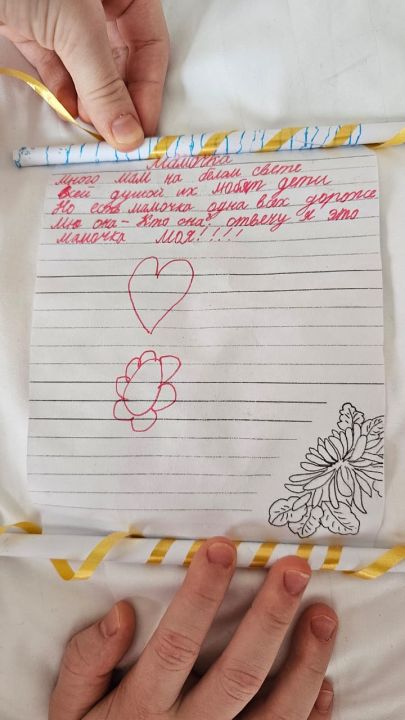 Мамочка
Много мам на белом свете
Всей душой их любят дети
Но есть мамочка одна всех дороже
Мне она - Кто она? отвечу я это
мамочка моя!!!!!